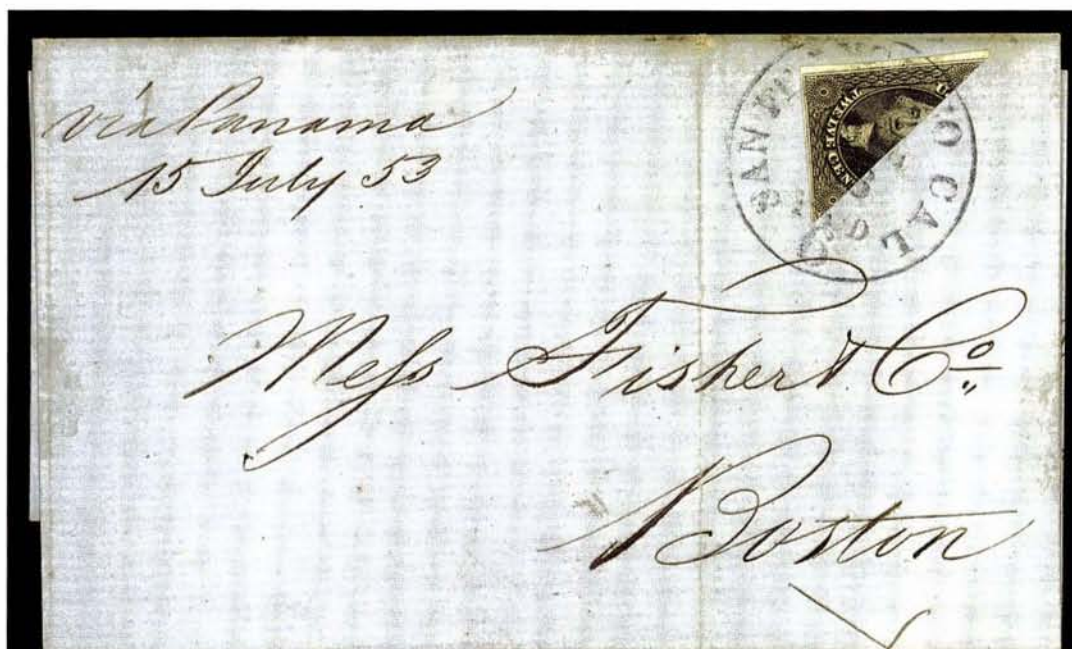 via Panama
15 July 53
SAN F O CAL
TWELVE
CEN
Mess Fisher & Co
Boston